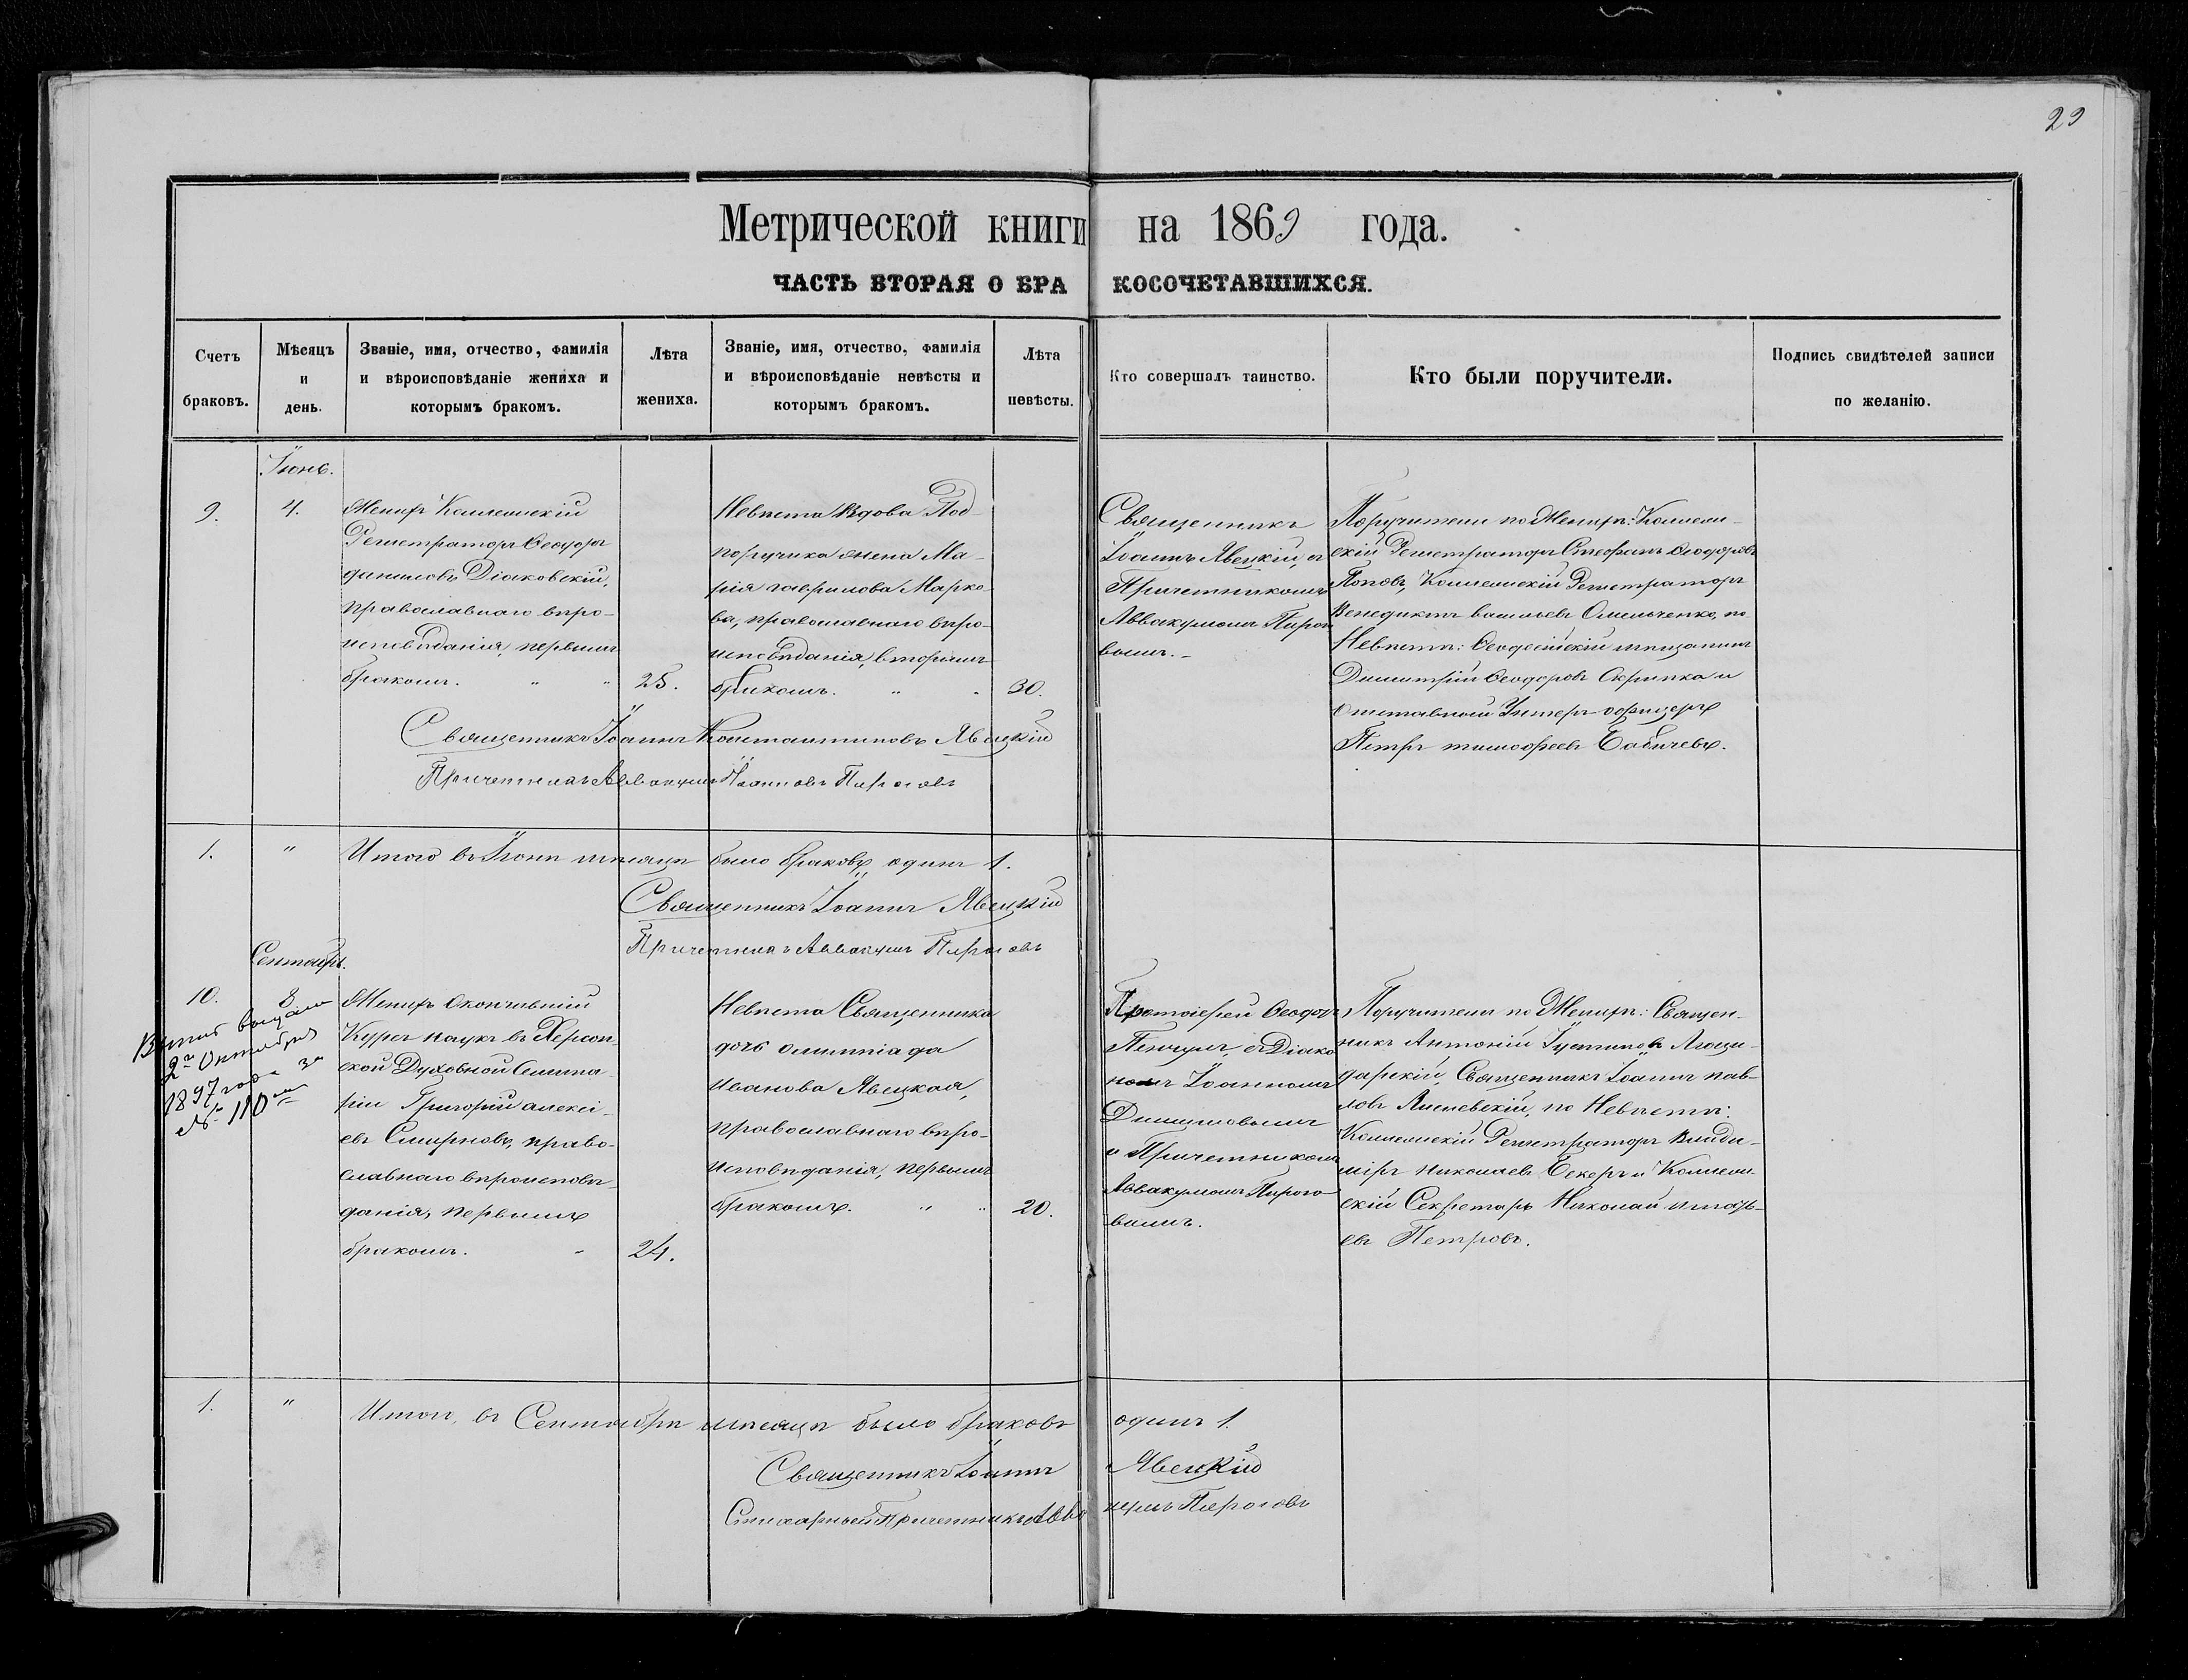 29
Метрической книги на 1869 года.
ЧАСТЬ ВТОРАЯ О БРАКОСОЧЕТАВШИХСЯ.
Счетъ браковъ.
Мѣсяцъ и день.
Званіе, имя, отчество, фамилія
и вѣроисповѣданіе жениха и
которымъ бракомъ.
Лѣта жениха.
Званіе, имя, отчество, фамилія
и вѣроисповѣданіе невѣсты и
которымъ бракомъ.
Лѣта невѣсты.
Кто совершалъ таинство.
Кто были поручители.
Подпись свидѣтелей записи
по желанію.
Іюнь.
9.
4.
Женихъ Коллежскій
Регистраторъ Ѳеодоръ
даниловъ Діаковскій,
православнаго вѣро-
исповѣданія, первымъ
бракомъ. " "
25.
Невѣста Вдова Под-
поручика жена Ма-
рія гаврилова Марко-
ва, православнаго вѣро-
исповѣданія, вторымъ
бракомъ. " "
30.
Священникъ
Іоаннъ Явецкій, съ
Причетникомъ
Аввакумомъ Пирого-
вымъ.-
Поручители по Женихѣ: Коллеж-
скій Регистраторъ Стефанъ Ѳеодоровъ
Поповъ, Коллежскій Регистраторъ
Венедиктъ васильевъ Омельченко, по
Невѣстѣ: Ѳеодосійскій мѣщанинъ
Димитрій Ѳеодоровъ Скрипка и
отставной Унтеръ-офицеръ
Петръ тимофеевъ Бабичевъ.
Священникъ Іоаннъ Константиновъ Явецкій
Причетникъ Аввакумъ Іоанновъ Пироговъ
1. " Итого въ Іюнѣ мѣсяцѣ было браковъ одинъ 1.
Священникъ Іоаннъ Явецкій
Причетникъ Аввакумъ Пироговъ
Сентябрь.
10.
8
Выпись выдана
2го Октября
1897 года за
№ 110мъ
Женихъ Окончившій
Курсъ наукъ въ Херсон-
ской Духовной Семина-
ріи Григорій алексі-
евъ Смирновъ, право-
славнаго вѣроисповѣ-
данія, первымъ
бракомъ. "
24.
Невѣста Священника
дочь олимпіада
Иванова Явецкая,
православнаго вѣро-
исповѣданія, первымъ
бракомъ. " "
20.
Протоіерей Ѳеодоръ
съ Діако-
номъ Іоанномъ
и Причетникомъ
Аввакумомъ Пирого-
вымъ.
Поручители по Женихѣ: Священ-
никъ Антоній Іустиновъ
Священникъ Іоаннъ пав-
ловъ по Невѣстѣ:
Коллежскій Регистраторъ Влади-
міръ николаевъ Бекеръ и Коллеж-
скій Секретарь Николай
евъ Петровъ.
1. " Итого, въ Сентябрѣ мѣсяцѣ было браковъ одинъ 1.
Священникъ Іоаннъ Явецкій
Стихарный Причетникъ Аввакумъ Пироговъ